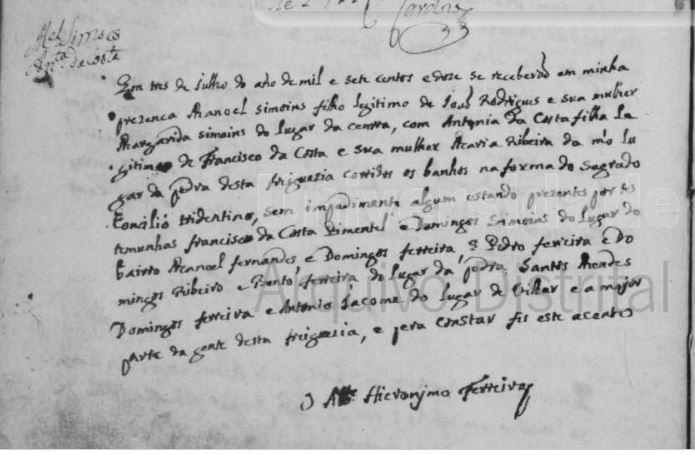 Cardozo
Mel Simoes
Anta da Costa
Em tres de Julho do año de mil e sete centos e doze se receberão em minha
prezenca Manoel Simoins filho legitimo de João Rodrigues e sua mulher
Margarida Simoins do lugar da, com Antonia da Costa filha le
gitima de Francisco da Costa e sua mulher Maria Ribeira do mo lu
gar da pedra desta freiguezia corridos os banhos na forma do Sagrado
Concilio tridentino, sem impedimento algum estando prezentes por tes
temunhas francisco da Costa Pimentel e Domingos Simoins do lugar do
bairro Manoel fernandes e Domingos ferreira e Pedro ferreira e Do
mingos Ribeiro e Bento ferreira do lugar da pedra Santos Mendes
Domingos ferreira e Antonio Jacome do lugar de Vilar e a major
parte da gente desta freiguezia, e pera constar fis este acento
O Hieronjmo Ferreira
Universidade de
Arquivo Distrital